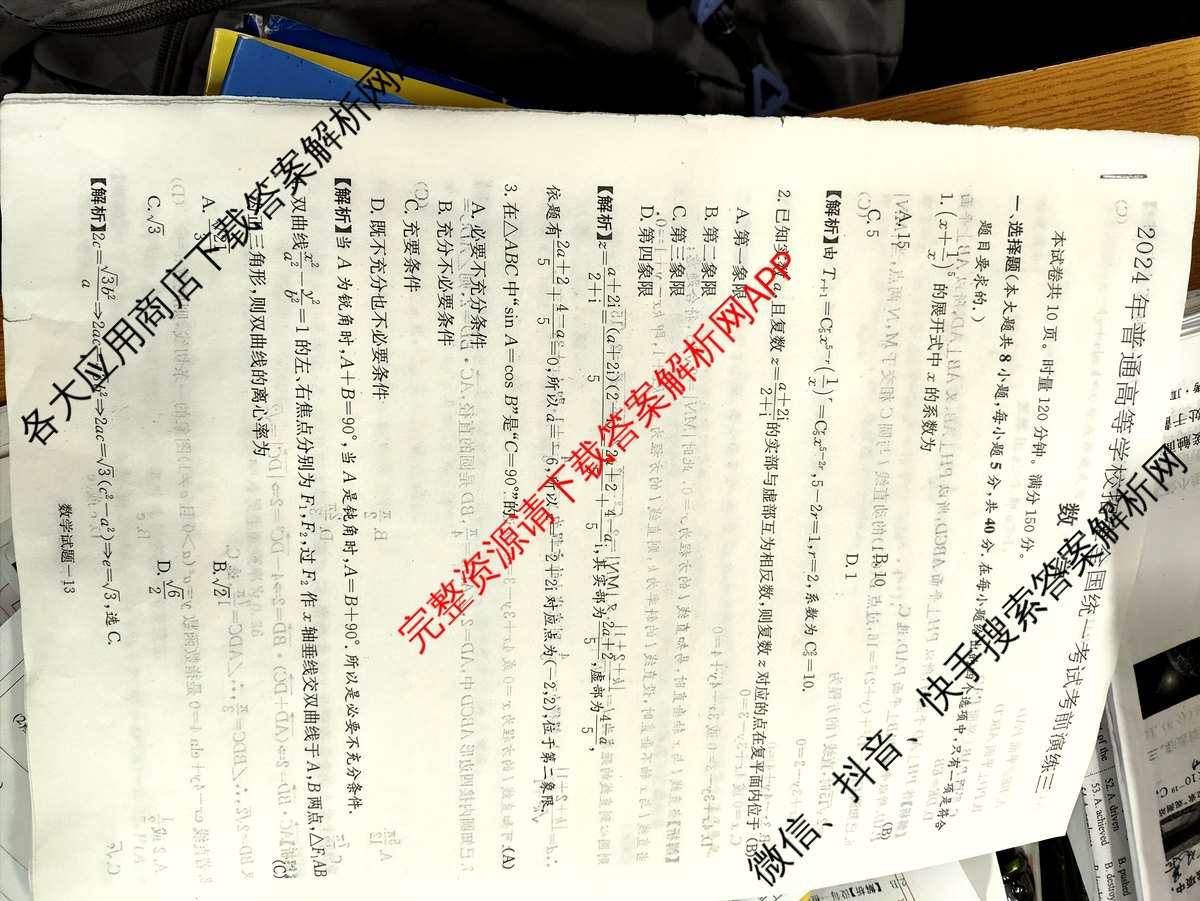 2024年普通高等学校招生全国统一考试考前演练三
数
本试卷共10页。时量120分钟。满分150分。
一、选择题(本大题共8小题,每小题5分,共40分.在每小题给出的四个选项中,只有一项是符合
题目要求的.)
1.(x+1/x)⁵的展开式中x的系数为 (B)
A.15 B.10
C.5 D.1
【解析】由Tᵣ₊₁=C₅ʳx⁵⁻ʳ(1/x)ʳ=C₅ʳx⁵⁻²ʳ,5-2r=1,r=2,系数为C₅²=10.
2.已知实数a,且复数z=(a+2i)/(2+i)的实部与虚部互为相反数,则复数z对应的点在复平面内位于(B)
A.第一象限
B.第二象限
C.第三象限
D.第四象限
【解析】z=(a+2i)/(2+i)=(a+2i)(2-i)/5=(2a+2)/5+(4-a)/5 i,其实部为(2a+2)/5,虚部为(4-a)/5,
依题有(2a+2)/5+(4-a)/5=0,所以a=-6,所以z=-2+2i对应点为(-2,2),位于第二象限.
3.在△ABC中“sin A=cos B”是“C=90°”的 (A)
A.必要不充分条件
B.充分不必要条件
C.充要条件
D.既不充分也不必要条件
【解析】当A为锐角时,A+B=90°,当A是钝角时,A=B+90°.所以是必要不充分条件.
双曲线x²/a²-y²/b²=1的左、右焦点分别为F₁,F₂,过F₂作x轴垂线交双曲线于A,B两点,△F₁AB
为正三角形,则双曲线的离心率为 (C)
A. B.√2
C.√3 D.√6/2
【解析】2c=√3b²/a⇒2ac=√3b²⇒2ac=√3(c²-a²)⇒e=√3,选C.
数学试题-13
各大应用商店下载答案解析网APP
完整资源请下载答案解析网APP
微信、抖音、快手搜索答案解析网
52. A. driven B. pushed
53. A. achieved B. destroy
of the